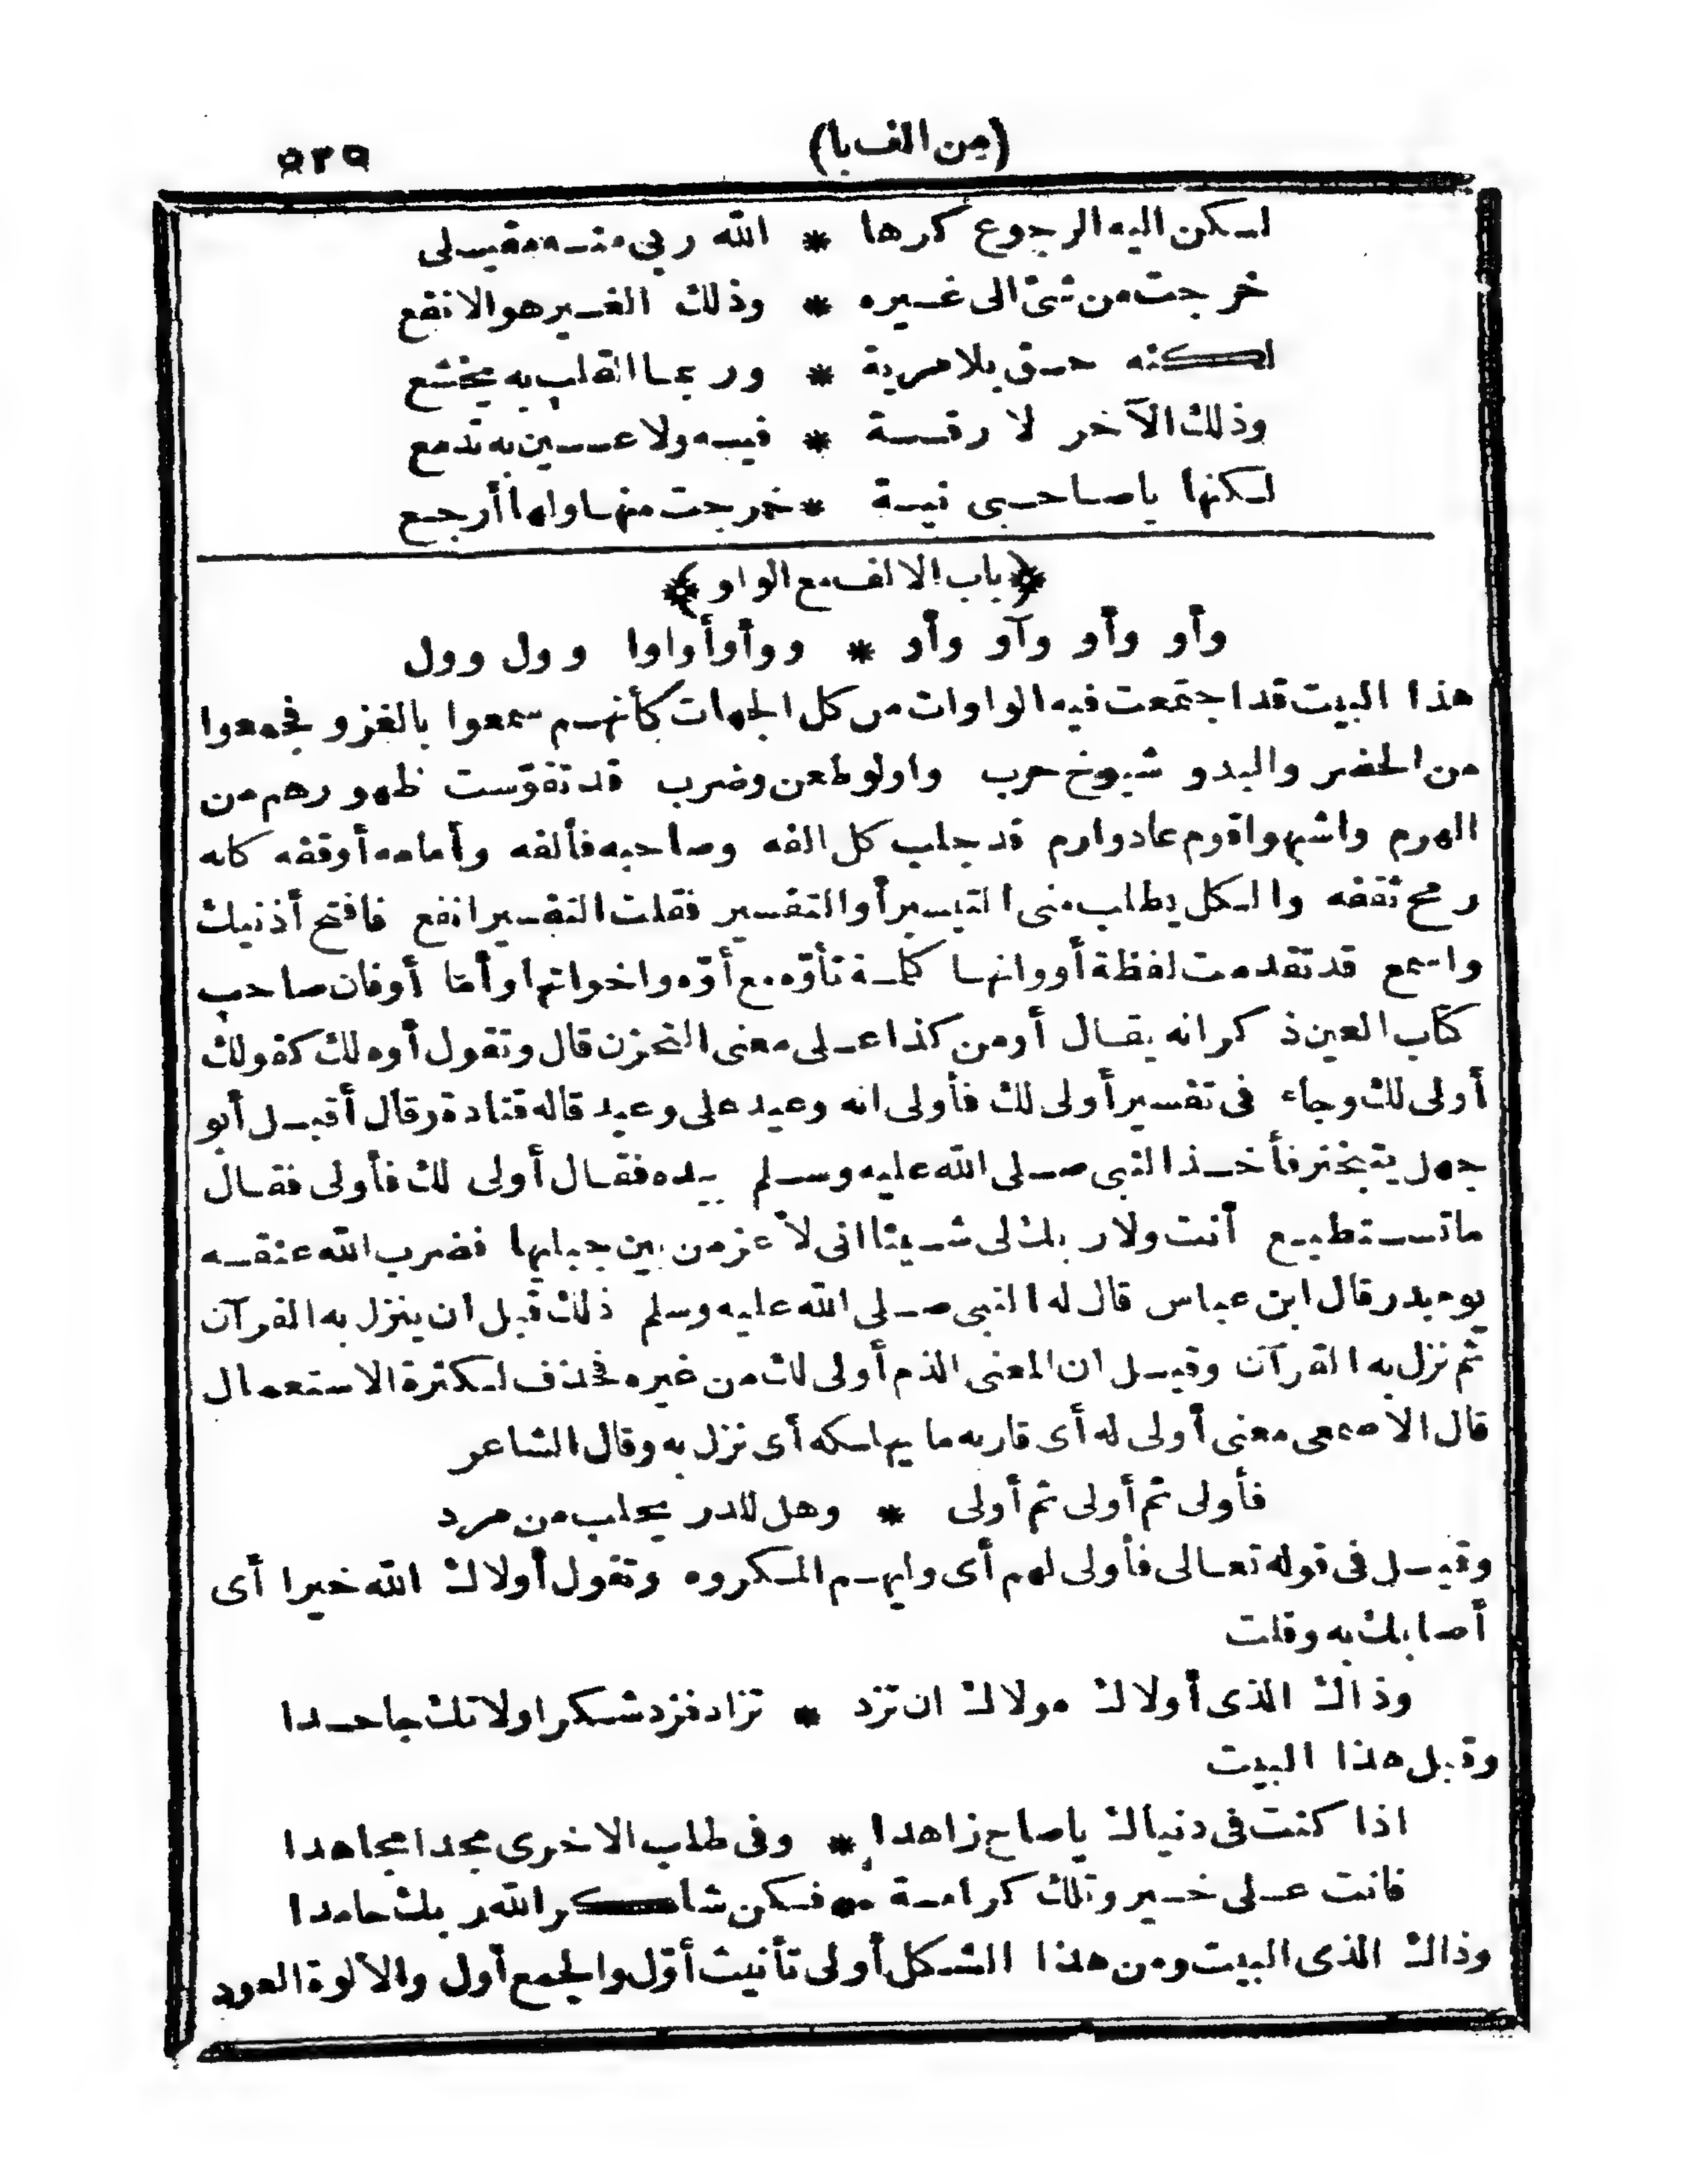 (من الف با)
٥٣٩
لكن اليه الرجوع كرها * الله ربى منه مقيلى
خرجت من شئ الى غيره * وذلك الغير هو الانفع
لكنه حق بلا مرية * وربما القلب به يخشع
وذلك الآخر لا رقة * فيه ولا عين به تدمع
لكنها يا صاحبى نية * خرجت منها ولها أرجع
﴿باب الالف مع الواو﴾
وأو وأو وآو وأو * ووأوأواوا وول وول
هذا البيت قد اجتمعت فيه الواوات من كل الجهات كأنهم سمعوا بالغزو فجمعوا
من الحضر والبدو شيوخ حرب واولو طعن وضرب قد تقوّست ظهورهم من
الهرم واشبهوا قوم عاد وارم قد جلب كل الفه وصاحبه فألفه وأمامه أوقفه كانه
رمح ثقفه والكل يطلب منى التيسير أو التفسير فقلت التفسير انفع فافتح أذنيك
واسمع قد تقدمت لفظة أو وانها كلمة تأوّه مع أوّه واخواتها وأمّا أو فان صاحب
كتاب العين ذكر انه يقال أو من كذا على معنى التحزن قال وتقول أوه لك كقولك
أولى لك وجاء فى تفسير أولى لك فأولى انه وعيد على وعيد قاله قتادة وقال أقبل أبو
جهل يتبختر فأخذ النبى صلى الله عليه وسلم بيده فقال أولى لك فأولى فقال
ما تستطيع أنت ولا ربك لى شيئا انى لأعز من بين جبليها فضرب الله عنقه
يوم بدر وقال ابن عباس قال له النبى صلى الله عليه وسلم ذلك قبل ان ينزل به القرآن
ثم نزل به القرآن وقيل ان المعنى الذم أولى لك من غيره فحذف لكثرة الاستعمال
قال الاصمعى معنى أولى له أى قاربه ما يهلكه أى نزل به وقال الشاعر
فأولى ثم أولى ثم أولى * وهل للدر يحلب من مرد
وقيل فى قوله تعالى فأولى لهم أى وليهم المكروه وتقول أولاك الله خيرا أى
أصابك به وقلت
وذاك الذى أولاك مولاك ان تزد * تزاد فزد شكرا ولا تك جاحدا
وقبل هذا البيت
اذا كنت فى دنياك يا صاح زاهدا * وفى طلب الاخرى مجدا مجاهدا
فانت على خير وتلك كرامة * فكن شاكرا لله ربك حامدا
وذاك الذى البيت ومن هذا الشكل أولى تأنيث أوّل والجمع أول والألوة العود